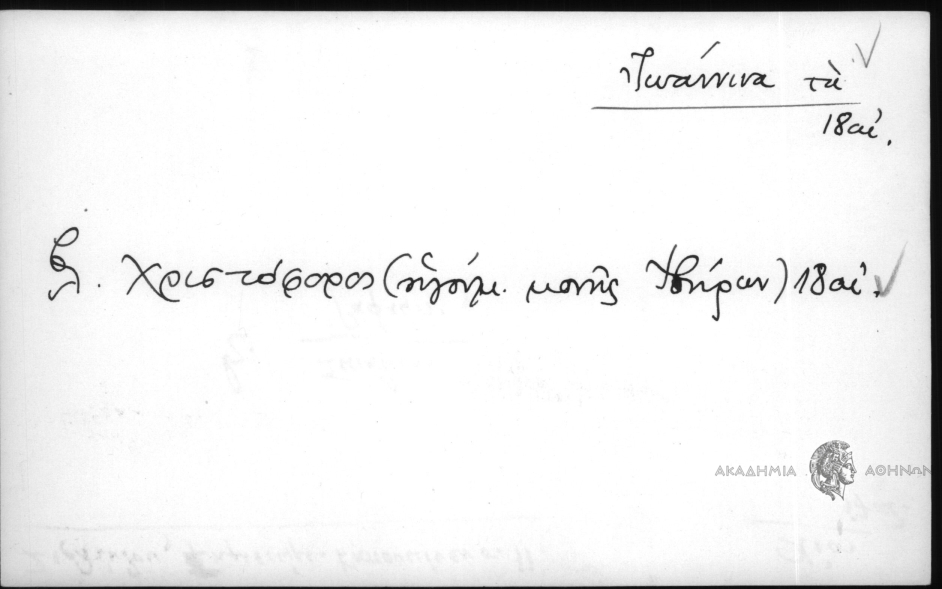 Ἰωάννινα τὰ
18 αἰ.
Β. Χριστόφορος (ἡγούμ. μονῆς Ἰβήρων) 18 αἰ.
ΑΚΑΔΗΜΙΑ ΑΘΗΝΩΝ